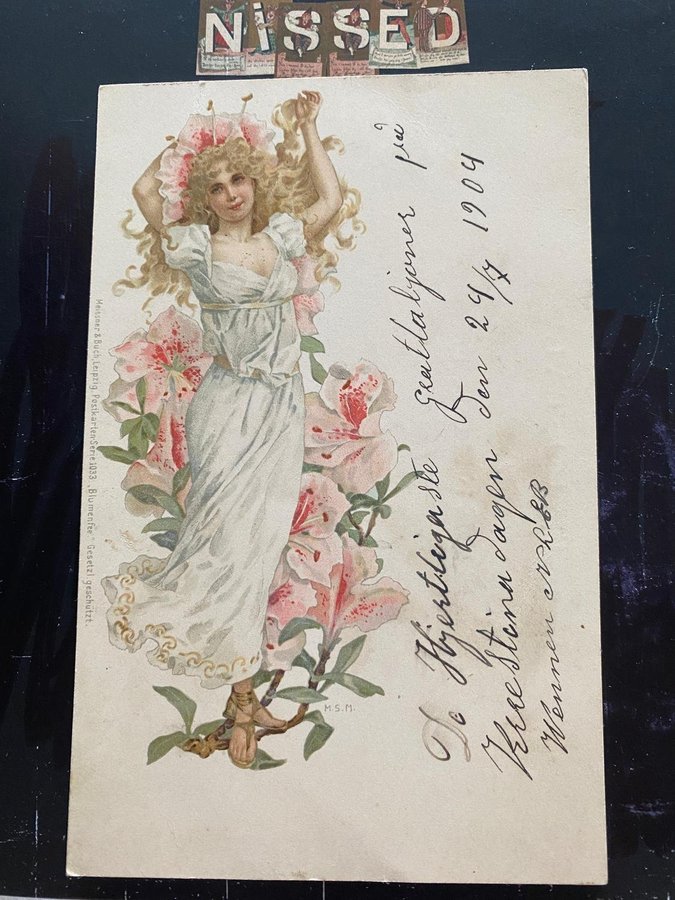 NiSSED
Meissner & Buch, Leipzig. Postkarten-Serie 1033. „Blumenfee" Gesetzl. geschützt.
M.S.M.
De Hjertligaste grattaljoner på
Kreestina dagen den 24/7 1904
Wännen